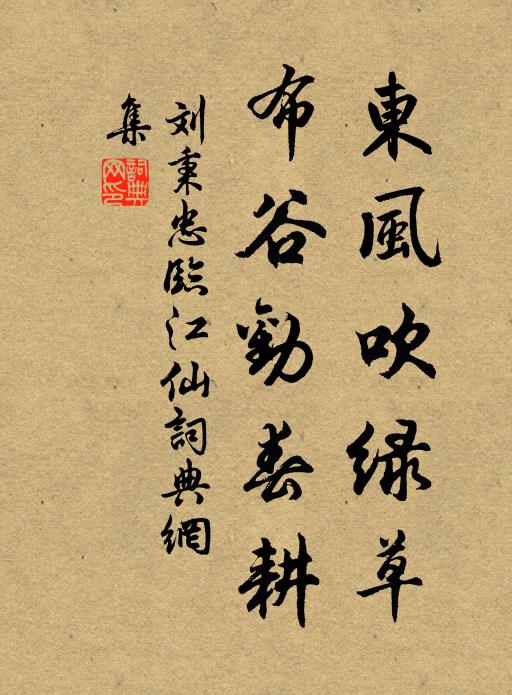 東風吹綠草
布谷勸春耕
刘秉忠臨江仙詞典網
集
詞典
网印